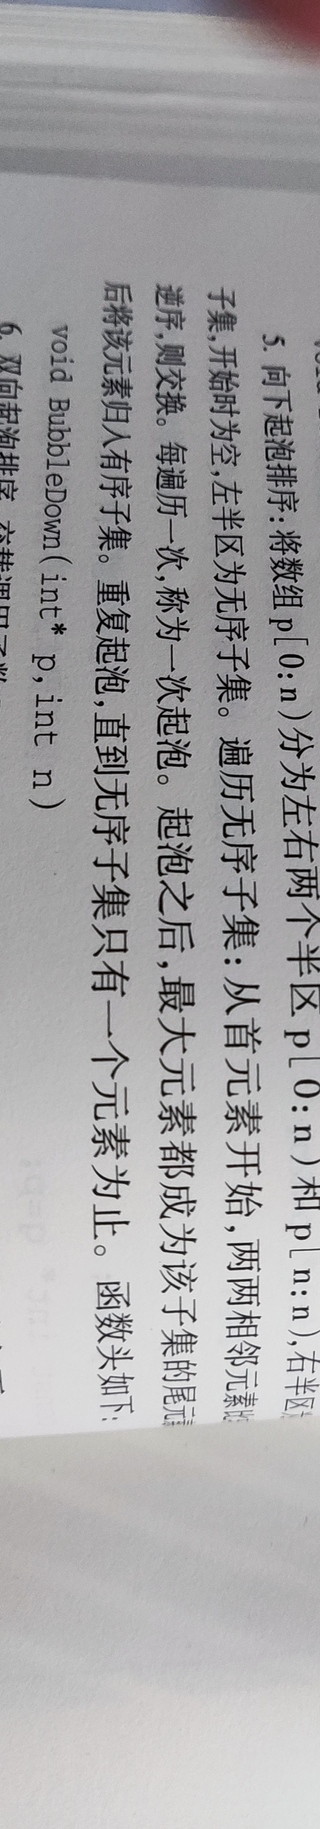 5. 向下起泡排序：将数组 p[0:n)分为左右两个半区 p[0:n)和 p[n:n)，右半区
子集，开始时为空，左半区为无序子集。遍历无序子集：从首元素开始，两两相邻元素
逆序，则交换。每遍历一次，称为一次起泡。起泡之后，最大元素都成为该子集的尾元
后将该元素归入有序子集。重复起泡，直到无序子集只有一个元素为止。函数头如下：
void BubbleDown(int* p,int n)
6. 双向起泡排序